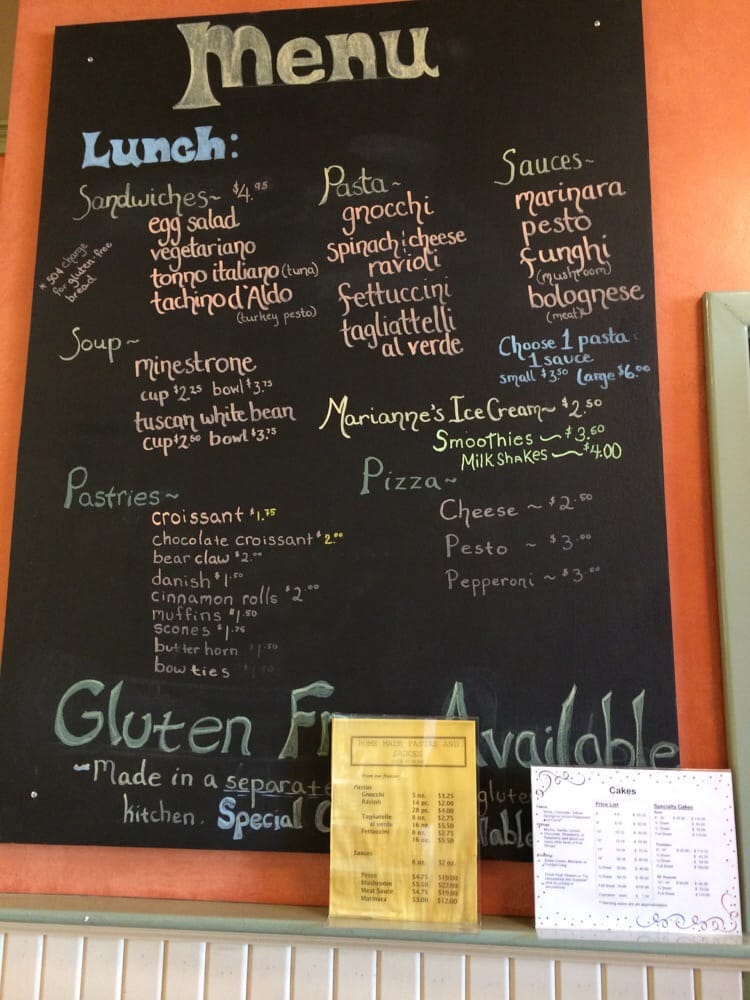 Menu
Lunch:
Sandwiches~ $4.95
egg salad
vegetariano
tonno italiano (tuna)
tachino d'Aldo
(turkey pesto)
* 50¢ charge
for gluten-free
bread
Soup~
minestrone
cup $2.25 bowl $3.75
tuscan white bean
cup $2.50 bowl $3.75
Pasta~
gnocchi
spinach & cheese
ravioli
fettuccini
tagliattelli
al verde
Sauces~
marinara
pesto
funghi
(mushroom)
bolognese
(meat)
Choose 1 pasta
1 sauce
small $3.50 large $6.00
Marianne's Ice Cream~ $2.50
Smoothies ~ $3.50
Milkshakes ~ $4.00
Pastries~
croissant $1.75
chocolate croissant $2.00
bear claw $2.00
danish $1.50
cinnamon rolls $2.00
muffins $1.50
scones $1.75
butter horn $1.50
bow ties $1.50
Pizza~
Cheese ~ $2.50
Pesto ~ $3.00
Pepperoni ~ $3.00
Gluten Available
~Made in a separate
kitchen. Special
HOME MADE PASTAS AND
SAUCES
Pastas
Gnocchi 5 oz. $3.25
Ravioli 14 pc. $2.00
28 pc. $4.00
Tagliatelle 8 oz. $2.75
al verde 16 oz. $5.50
Fettuccini 8 oz. $2.75
16 oz. $5.50
Sauces
8 oz. 32 oz.
Pesto $4.75 $19.00
Mushroom $5.50 $22.00
Meat Sauce $4.75 $19.00
Marinara $3.00 $12.00
Cakes
Price List
Specialty Cakes